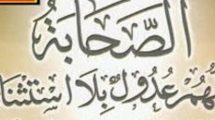 الصَّحَابَةُ
كُلُّهُمْ عُدُولٌ بِلَا اسْتِثْنَاءٍ